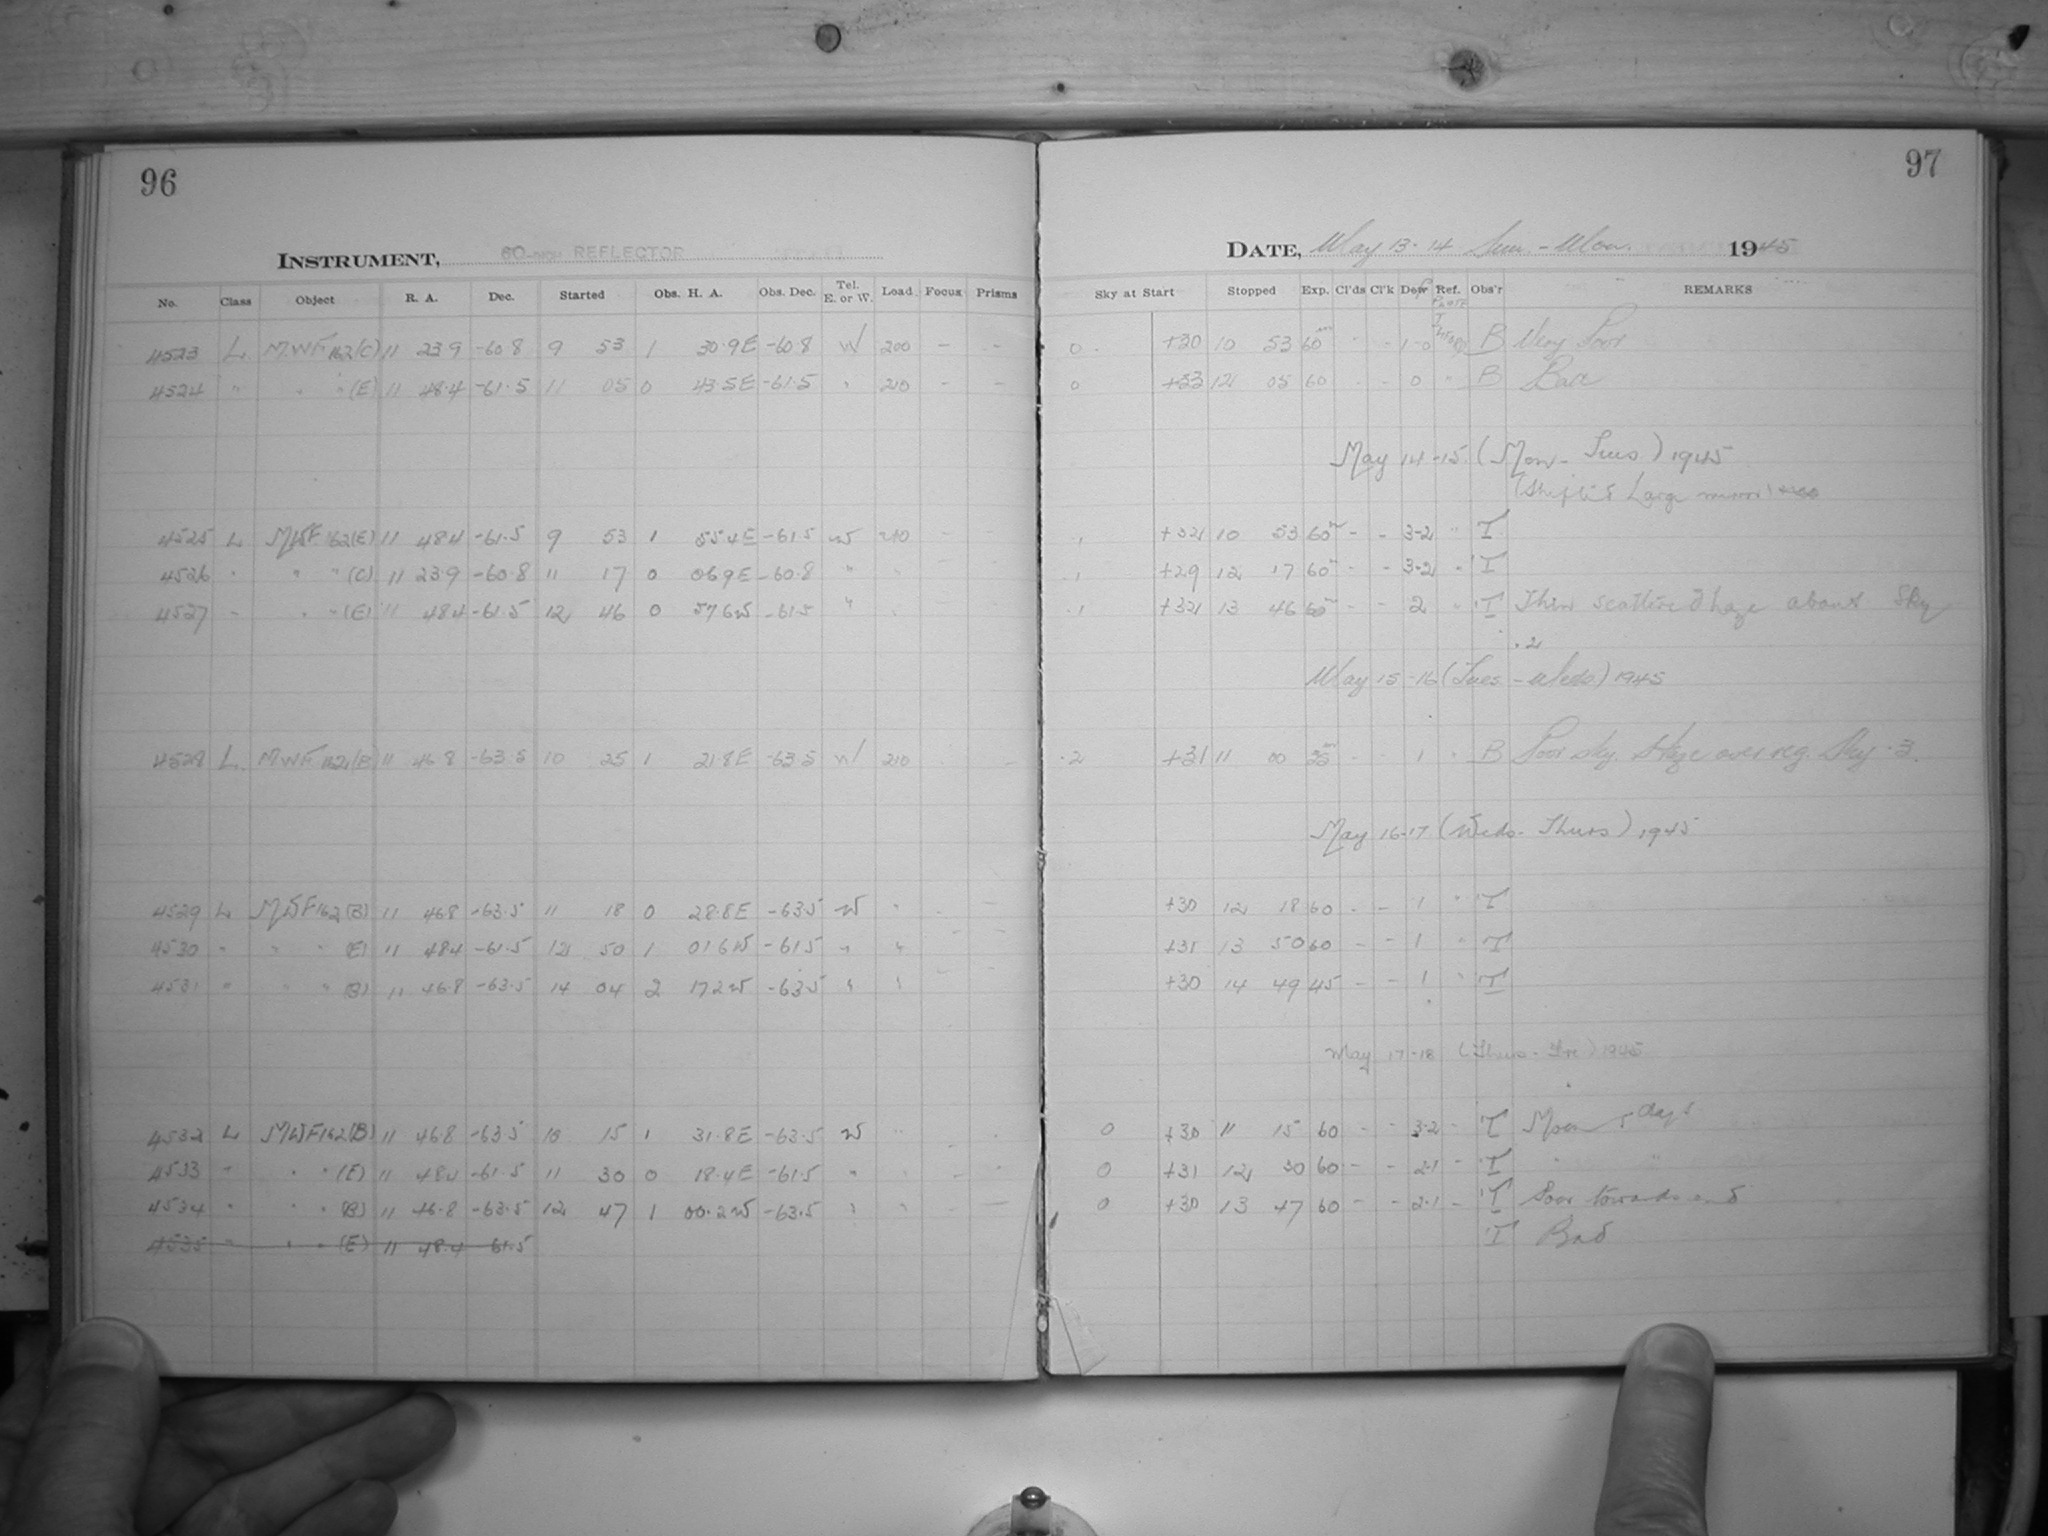 96
INSTRUMENT, 60-INCH REFLECTOR
No. Class Object R. A. Dec. Started Obs. H. A. Obs. Dec. Tel. E. or W. Load Focus Prisms
4523 L MWF162(C) 11 23.9 -60.8 9 53 1 30.9E -60.8 W 200 - -
4524 " " " (E) 11 48.4 -61.5 11 05 0 43.5E -61.5 " 210 - -
4525 L MWF162(E) 11 48.4 -61.5 9 53 1 55.4E -61.5 W 210
4526 " " " (C) 11 23.9 -60.8 11 17 0 06.9E -60.8 "
4527 " " " (E) 11 48.4 -61.5 12 46 0 57.6W -61.5 "
4528 L MWF162( ) 11 46.8 -63.5 10 25 1 21.8E -63.5 W 210
4529 L MWF162(B) 11 46.8 -63.5 11 18 0 28.8E -63.5 W "
4530 " " " (E) 11 48.4 -61.5 12 50 1 01.6W -61.5 " "
4531 " " " (B) 11 46.8 -63.5 14 04 2 17.2W -63.5 " "
4532 L MWF162(B) 11 46.8 -63.5 10 15 1 31.8E -63.5 W "
4533 " " " (E) 11 48.4 -61.5 11 30 0 18.4E -61.5 "
4534 " " " (B) 11 46.8 -63.5 12 47 1 00.2W -63.5 " "
4535 " " " (E) 11 48.4 61.5
97
DATE, May 13-14 Sun. - Mon. 1945
Sky at Start Stopped Exp. Cl'ds Cl'k Dew Ref. Obs'r REMARKS
0 +30 10 53 60m - - 1-0 B Very Poor
0 +33 12 05 60 - - 0 " B
May 14-15 (Mon- Tues) 1945
Large mirror
.1 +32 10 53 60m - - 3-2 " T
.1 +29 12 17 60m - - 3-2 " T
.1 +32 13 46 60m - - 2 " T Thin scattered haze about Sky
.2
May 15-16 (Tues - Weds) 1945
.2 +31 11 00 35m - - 1 " B Poor sky. Haze over reg. Sky .3.
May 16-17 (Weds- Thurs) 1945
+30 12 18 60 - - 1 " T
+31 13 50 60 - - 1 " T
+30 14 49 45 - - 1 " T
May 17-18 (Thurs- Fri) 1945
0 +30 11 15 60 - - 3-2 - T Moon 5 days
0 +31 12 30 60 - - 2-1 - T
0 +30 13 47 60 - - 2-1 - T Poor towards end
T Bad